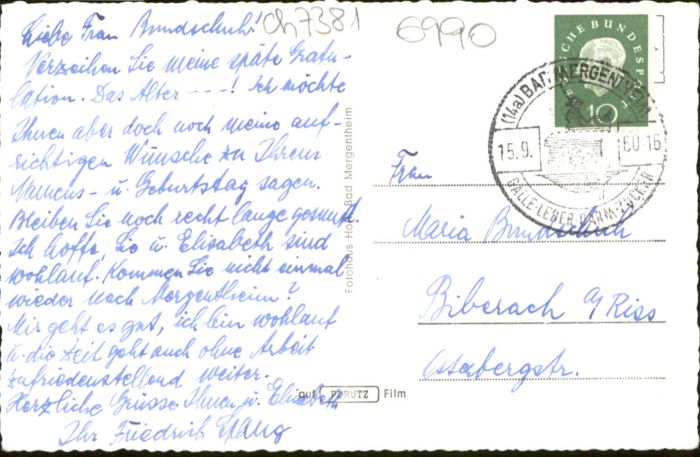 Liebe Frau Bundschuh!
Verzeihen Sie meine späte Gratu-
lation. Das Alter ---! Ich möchte
Ihnen aber doch noch meine auf-
richtigen Wünsche zu Ihrem
Namens- u. Geburtstag sagen.
Bleiben Sie noch recht lange gesund.
Ich hoffe, Sie u. Elisabeth sind
wohlauf. Kommen Sie nicht einmal
wieder nach Mergentheim?
Mir geht es gut, ich bin wohlauf
u. die Zeit geht auch ohne Arbeit
zufriedenstellend weiter.
Herzliche Grüsse Ihnen u. Elisabeth
Ihr Friedrich
ch7381
6990
Fotohaus Bad Mergentheim
auf PERUTZ Film
SCHE BUNDESP
10
(14a) BAD MERGENTHEIM
15.9. 60-16
GALLE-LEBER-DARM-ZUCKER
Frau
Maria Bundschuh
Biberach a/Riss